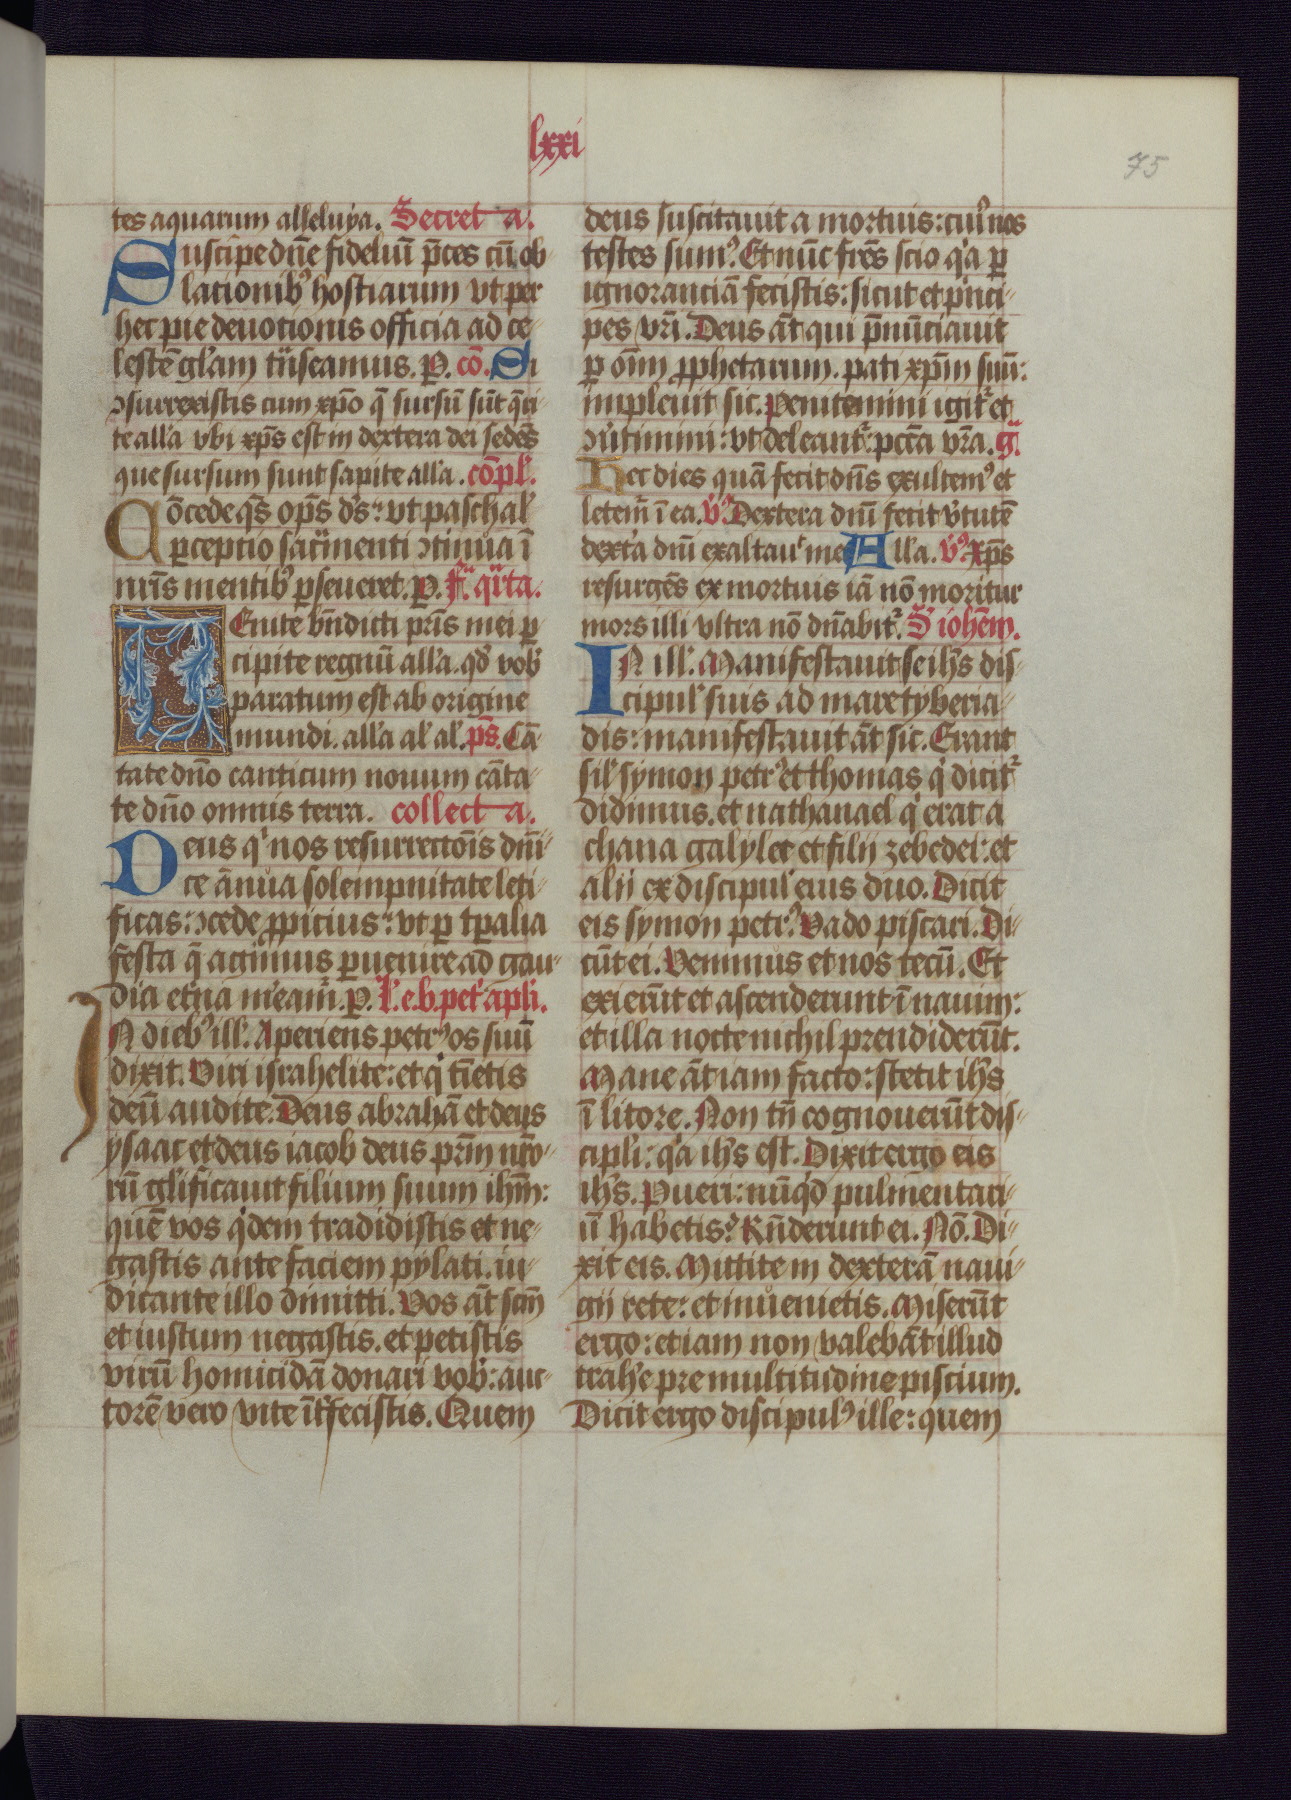 lxxi
75
tes aquarum alleluya. Secreta.
Suscipe dn̄e fideliū p̄ces cū ob
lationibꝰ hostiarum vt per
hec pie deuotionis officia ad ce-
lestē gl'am tn̄seamus. P. cō. Si
ↄsurrexistis cum xp̄o q̄ sursū sūt q̄ri
te all'a vbi xp̄s est in dextera dei sedēs
que sursum sunt sapite all'a. cōpl'.
Cōcede qs̄ op̄s ds̄: vt paschal'
ꝑceptio sac̄menti ↄtinua ī
nr̄is mentibꝰ ꝑseueret. P. Fr̄ qr̄ta.
VEnite bn̄dicti pr̄is mei ꝑ
cipite regnū all'a. qd' vob'
paratum est ab origine
mundi. all'a al' al'. ps̄. Cā
tate dn̄o canticum nouum cāta-
te dn̄o omnis terra. collecta.
Deus q' nos resurrectōis dn̄i-
ce ānua solempnitate leti-
ficas: ↄcede ꝓpicius: vt ꝑ tp̄alia
festa q̄ agimus ꝑuenire ad gau-
dia et'na m'eam̄. P. L'. e. b. pet' apl'i.
IN diebꝰ ill'. Aperiens petrꝰ os suū
dixit. Viri israhelite: et q' tīetis
deū audite. Deus abrahā et deus
ysaac et deus iacob deus pr̄m nr̄o-
rū gl'ificauit filium suum ih̄m:
quē vos q'dem tradidistis et ne-
gastis ante faciem pylati. iu-
dicante illo dimitti. Vos āt scm̄
et iustum negastis. et petistis
virū homicidā donari vob': auc-
torē vero vite īt'fecistis. Quem
deus suscitauit a mortuis: cuiꝰ nos
testes sumꝰ. Et nūc fr̄es scio q'a ꝑ
ignoranciā fecistis: sicut et p'nci-
pes vr̄i. Deus āt qui p̄nūciauit
ꝑ oīm ꝓphetarum. pati xp̄m suū:
impleuit sic. Penitemini igit' et
ↄu'timini: vt deleant': pcc̄a vr̄a. ḡ.
Hec dies quā fecit dn̄s exultemꝰ et
letem̄ ī ea. V̓. Dextera dn̄i fecit v'tutē
dext'a dn̄i exaltau' me All'a. V̓. Xp̄s
resurgēs ex mortuis iā nō moritur
mors illi vltra nō dn̄abit'. S iohēm.
IN ill'. Manifestauit se ih̄s dis-
cipul' suis ad mare tyberia-
dis: manifestauit āt sic. Erant
sil' symon petrꝰ et thomas q' dicit'
didimus. et nathanael q' erat a
chana galylee et filij zebedei: et
alij ex discipul' eius duo. Dicit
eis symon petrꝰ. Vado piscari. Di-
cūt ei. Venimus et nos tecū. Et
exierūt et ascenderunt ī nauim:
et illa nocte nichil prendiderūt.
Mane āt iam facto: stetit ih̄s
ī litore. Non tn̄ cognouerūt dis-
cipl'i: q'a ih̄s est. Dixit ergo eis
ih̄s. Pueri: nūq'd pulmentari-
ū habetis? Rn̄derunt ei. Nō. Di-
xit eis. Mittite in dexterā naui-
gij rete: et inuenietis. Miserūt
ergo: et iam non valebāt illud
trah'e pre multitudine piscium.
Dicit ergo discipulꝰ ille: quem